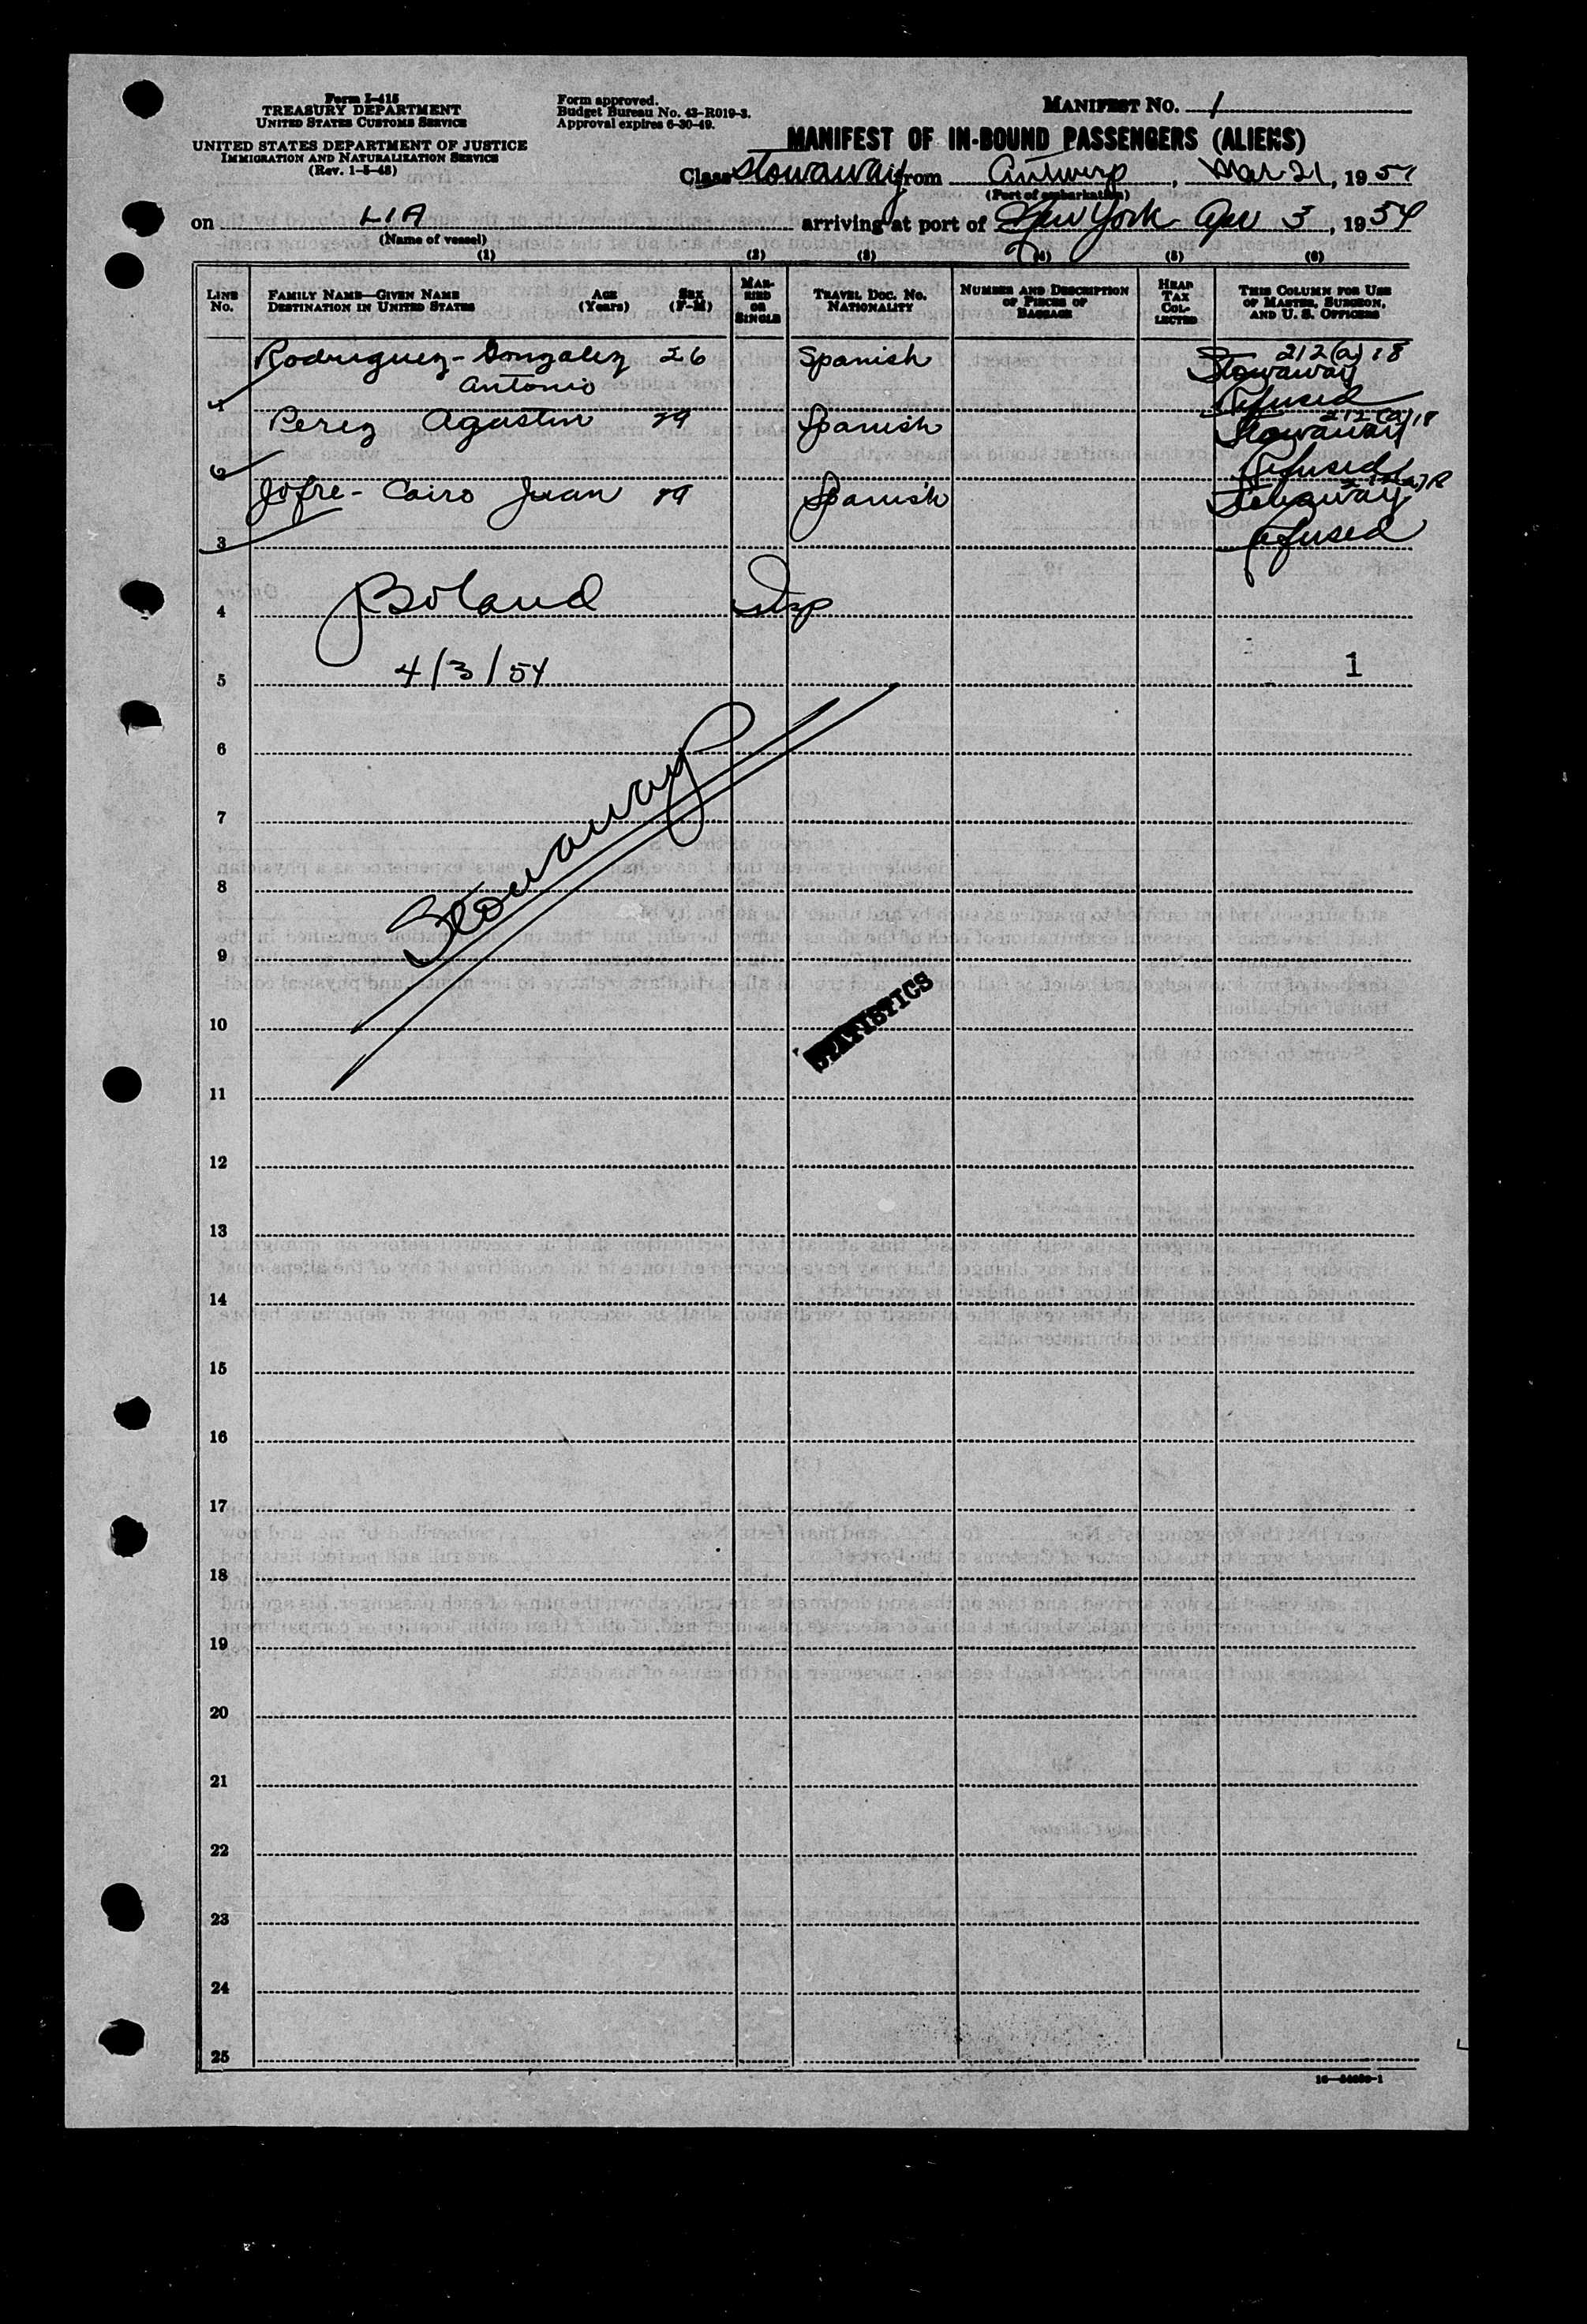 Form I-415
TREASURY DEPARTMENT
UNITED STATES CUSTOMS SERVICE
UNITED STATES DEPARTMENT OF JUSTICE
IMMIGRATION AND NATURALIZATION SERVICE
(Rev. 1-5-48)
Form approved.
Budget Bureau No. 43-R019-3.
Approval expires 6-30-49.
MANIFEST NO. 1
MANIFEST OF IN-BOUND PASSENGERS (ALIENS)
Class Stowaway from Antwerp, Mar 21, 1954
(Port of embarkation)
on LIA arriving at port of New York Apr 3, 1954
(Name of vessel)
(1) (2) (3) (4) (5) (6)
LINE No. FAMILY NAME—GIVEN NAME DESTINATION IN UNITED STATES AGE (Years) SEX (F-M) MARRIED OR SINGLE TRAVEL DOC. NO. NATIONALITY NUMBER AND DESCRIPTION OF PIECES OF BAGGAGE HEAD TAX COLLECTED THIS COLUMN FOR USE OF MASTER, SURGEON, AND U. S. OFFICERS
Rodriguez-Gonzalez 26 Spanish 212(a)18
Antonio Stowaway
1 Refused
Perez Agustin 29 Spanish 212(a)18
Stowaway
2 Refused
Jofre-Cairo Juan 29 Spanish
Stowaway
3 Refused
4 Boland Insp
5 4/3/54 1
6
7
8
Stowaway
9
10
STATISTICS
11
12
13
14
15
16
17
18
19
20
21
22
23
24
25